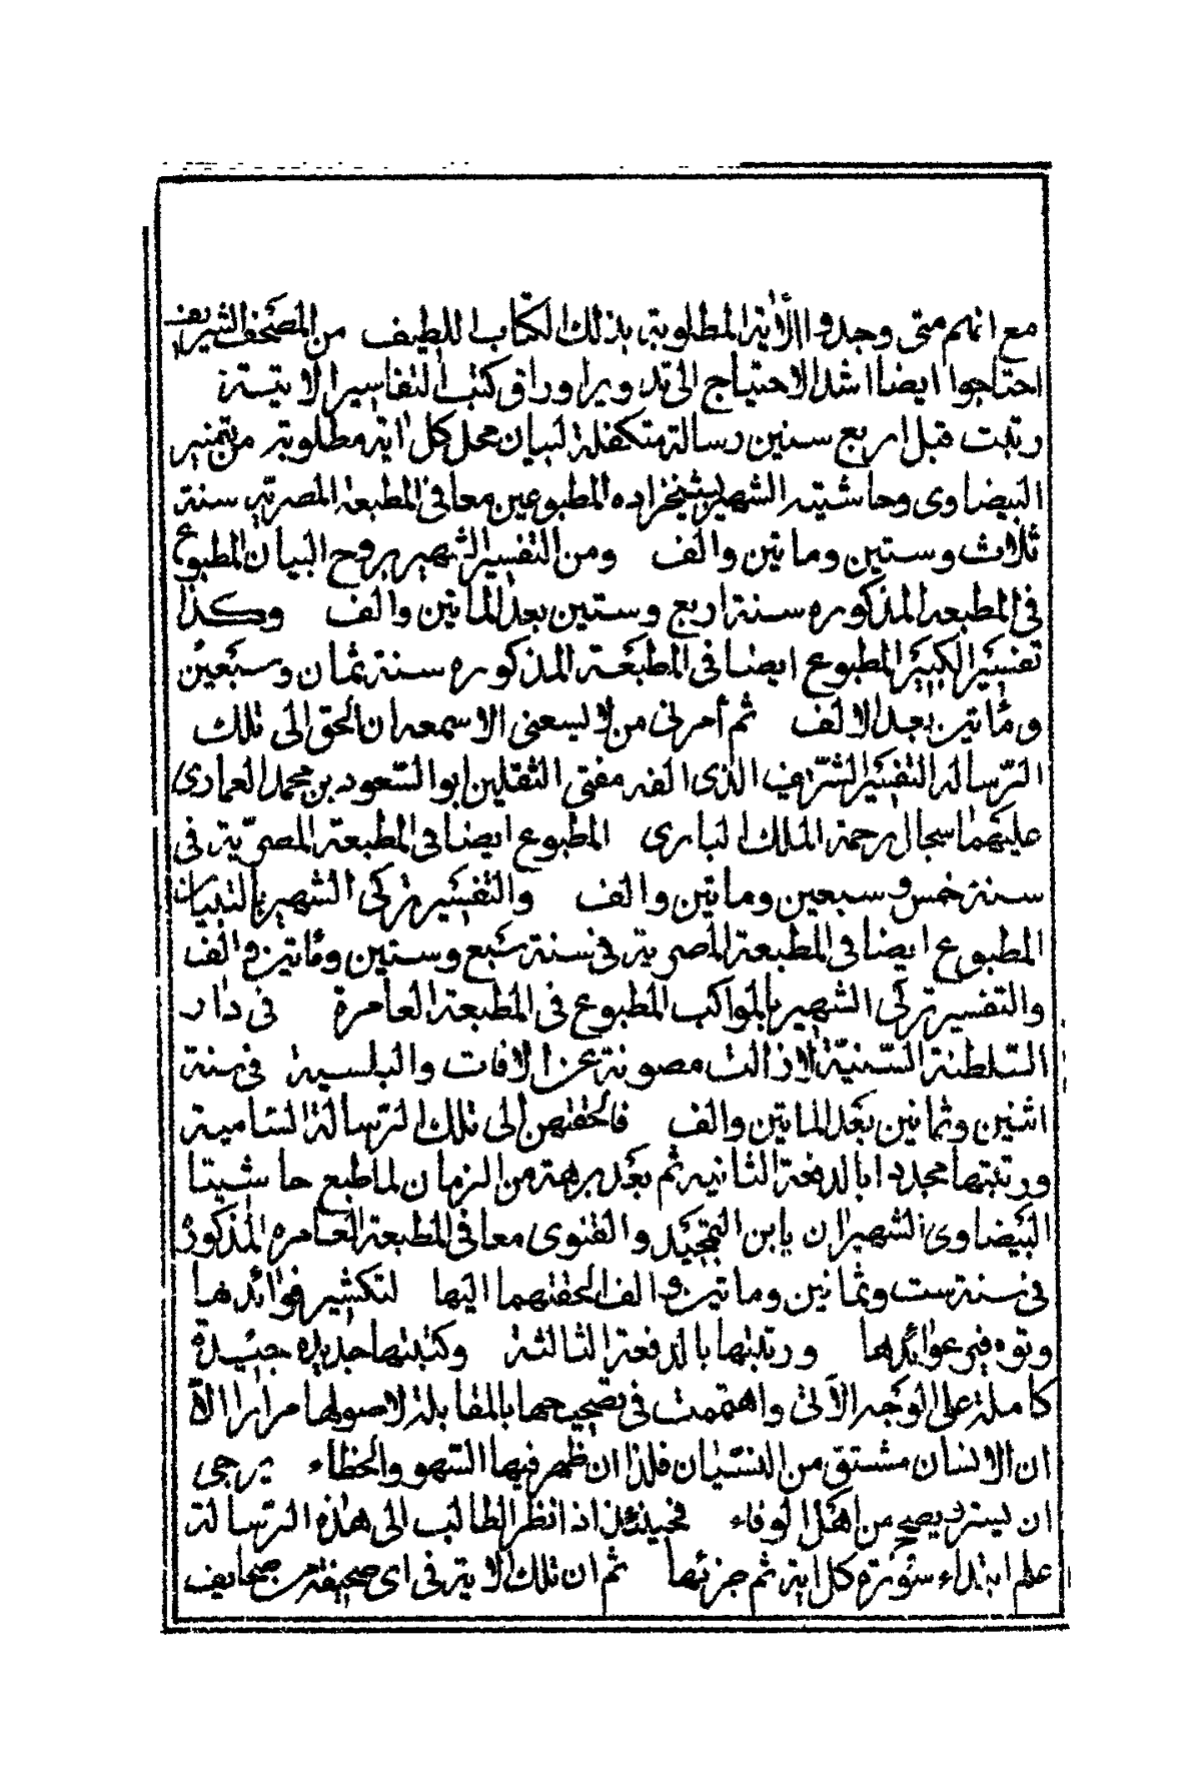 مع انهم متى وجدوا الآية المطلوبة بذلك الكتاب اللطيف من المصحف الشريف
احتاجوا ايضا اشد الاحتياج الى تدوير اوراق كتب التفاسير الايتسة
رتبت قبل اربع سنين رسالة متكفلة لبيان محل كل اية مطلوبة من تفسير
البيضاوى وحاشيته الشهير بشيخزاده المطبوعين معا فى المطبعة المصرية سنة
ثلاث وستين ومأتين والف ومن التفسير الشهير بروح البيان المطبوع
فى المطبعة المذكوره سنة اربع وستين بعد المأتين والف وكذا
تفسير الكبير المطبوع ايضا فى المطبعة المذكوره سنة ثمان وسبعين
ومأتين بعد الالف ثم أمرنى من لا يسعنى الا سمعه ان الحق الى تلك
الرسالة التفسير الشريف الذى الفه مفتى الثقلين ابو السعود بن محمد العمادى
عليهما سجال رحمة الملك البارى المطبوع ايضا فى المطبعة المصرية فى
سنة خمس وسبعين ومأتين والف والتفسير تركى الشهير بالتبيان
المطبوع ايضا فى المطبعة المصرية فى سنة سبع وستين ومأتين والف
والتفسير تركى الشهير بالمواكب المطبوع فى المطبعة العامرة فى دار
السلطنة السنية لازالت مصونة عن الافات والبلسية فى سنة
اثنين وثمانين بعد المأتين والف فالحقتهن الى تلك الرسالة السامية
ورتبتها مجددا بالدفعة الثانيه ثم بعد برهة من الزمان لما طبع حاشيتا
البيضاوى الشهيران بابن التمجيد والقنوى معا فى المطبعة العامره المذكوره
فى سنة ست وثمانين ومأتين والف الحقتهما اليها لتكثير فوائدها
وتوفير عوائدها ورتبتها بالدفعة الثالثة وكتبتها جديده جيدة
كاملة على الوجه الآتى واهتممت فى تصحيحها بالمقابلة لاصولها مرارا الا
ان الانسان مشتق من النسيان فلذا ان ظهر فيها السهو والخطاء يرجى
ان يستر ويصحح من اهل الوفاء فحينئذ اذا نظر الطالب الى هذه الرسالة
علم ابتداء سورة كل اية ثم جزئها ثم ان تلك الاية فى اى صحيفة من صحايف